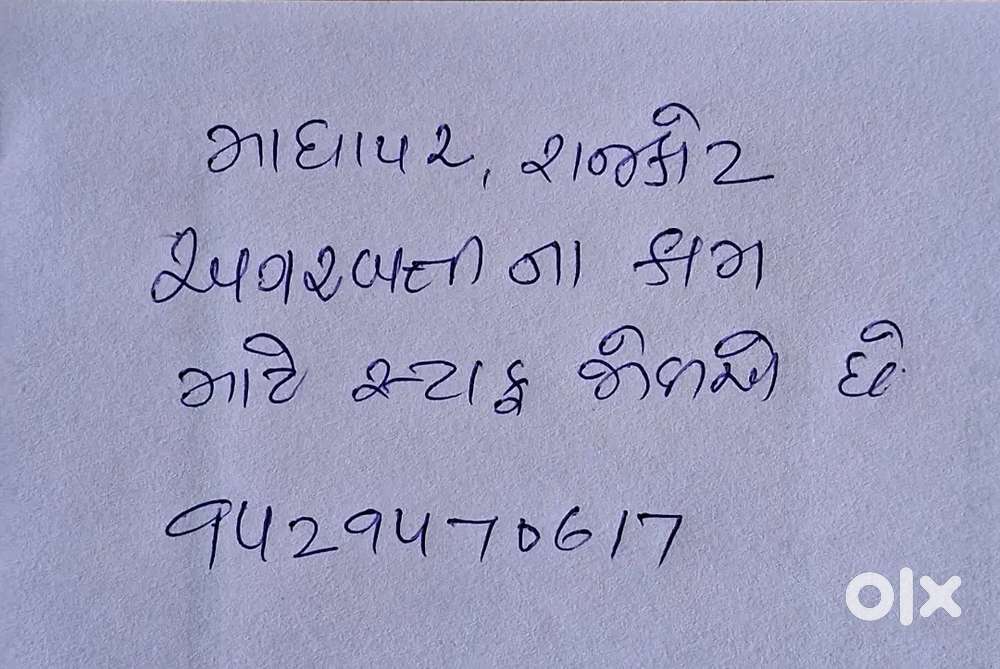 માધાપર, રાજકોટ
અગરબત્તી ના કામ
માટે સ્ટાફ જોઈએ છે
9429470617
olx